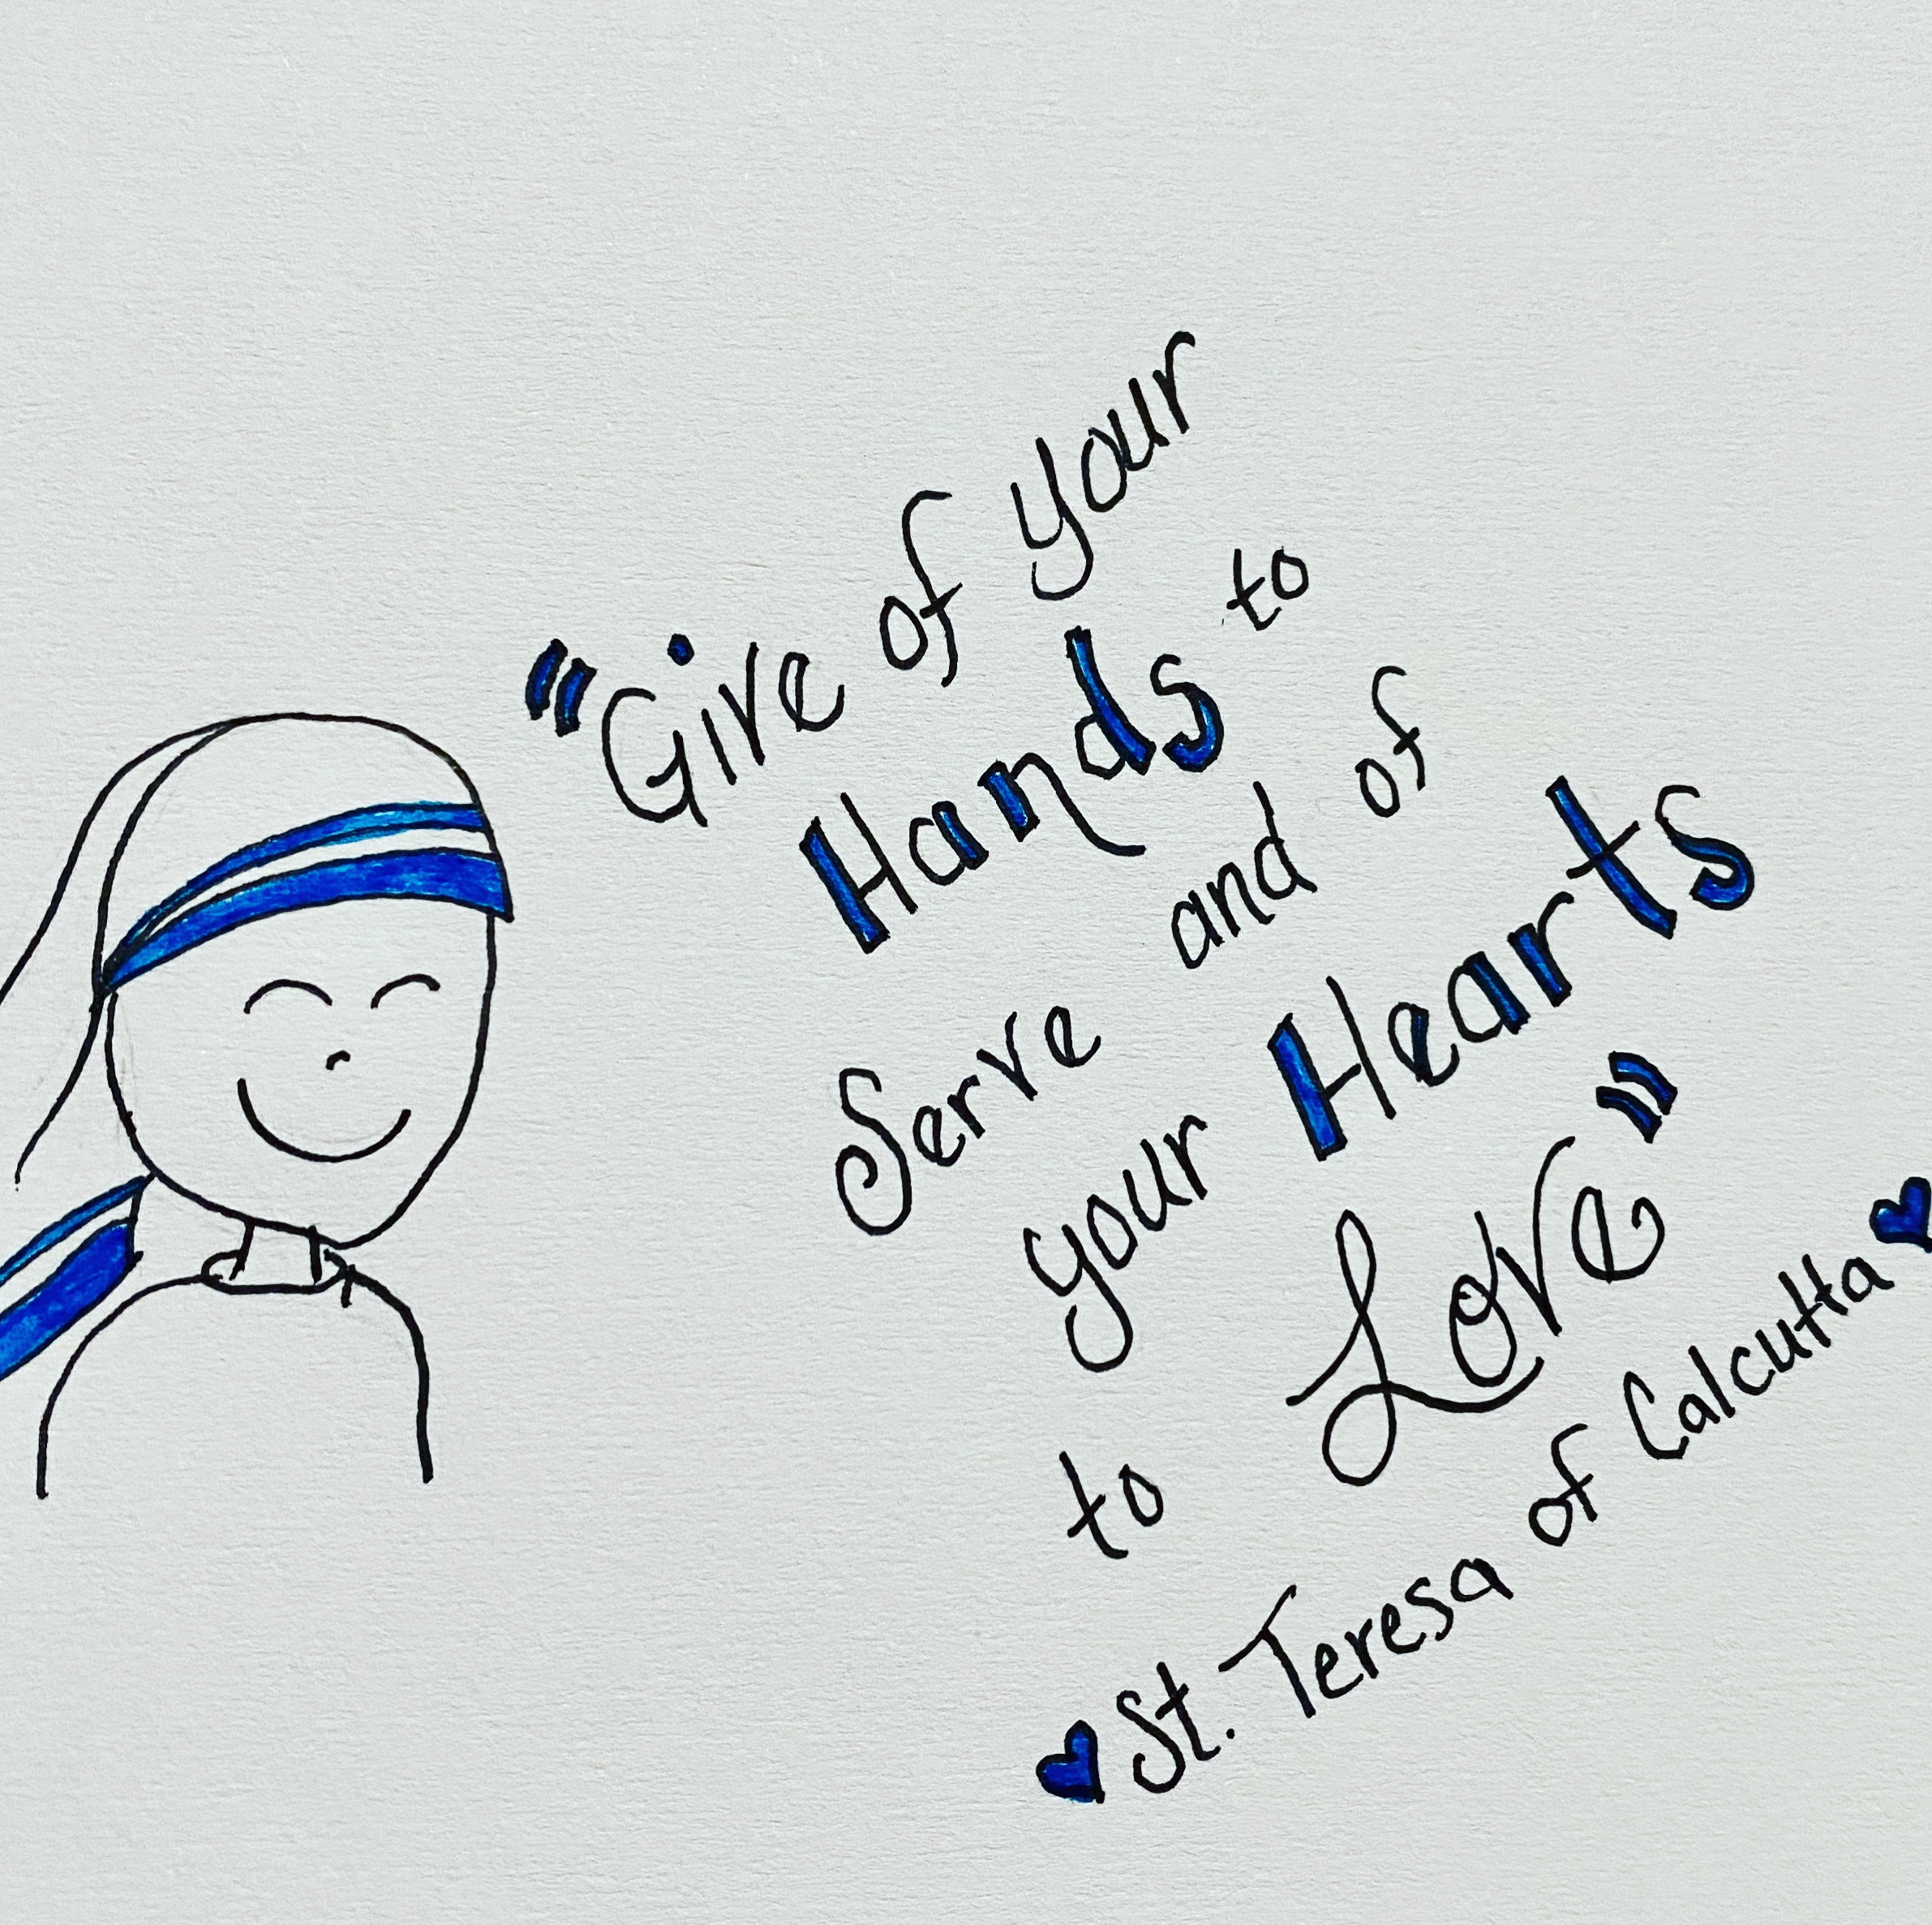 "Give of your
Hands to
Serve and of
your Hearts
to Love"
St. Teresa of Calcutta